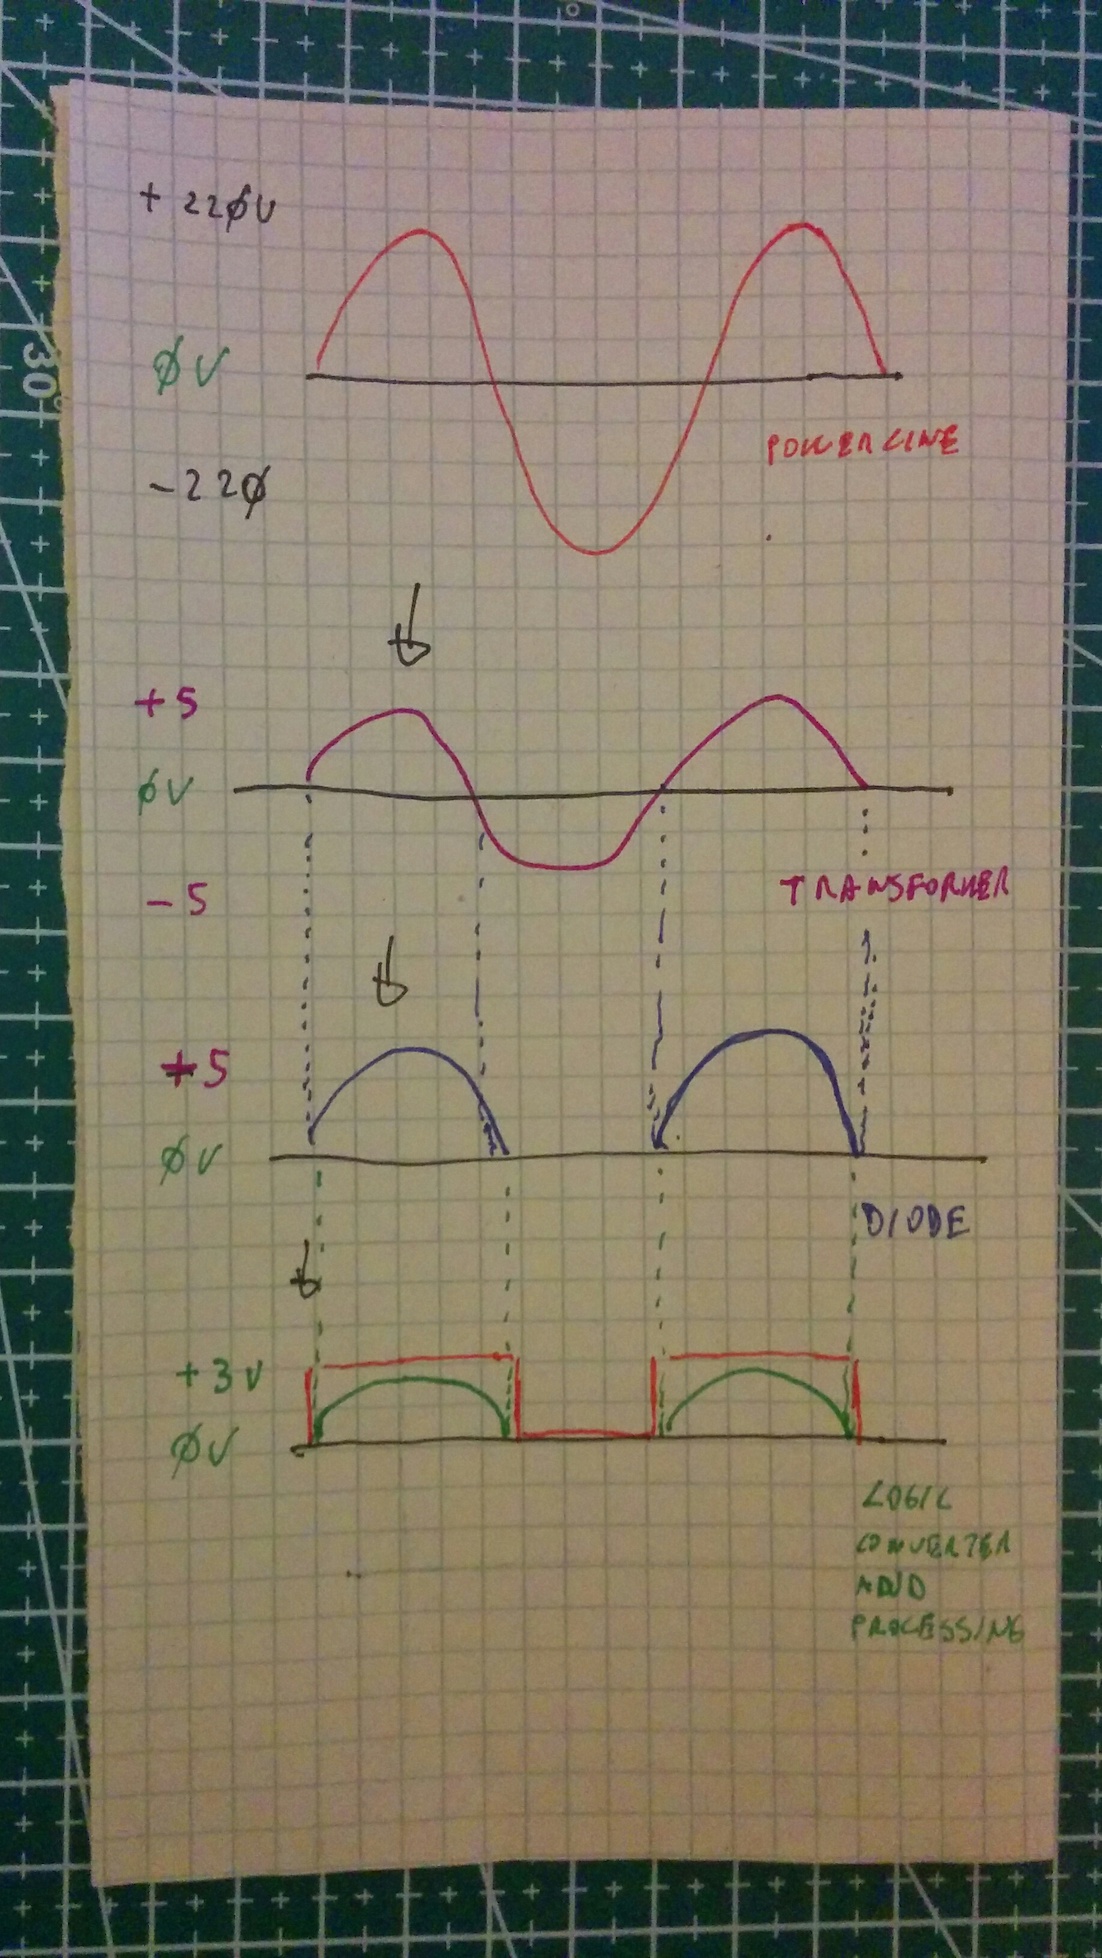 + 22øV
øV
30°
POWERLINE
-22ø
+5
øV
-5
TRANSFORMER
+5
øV
DIODE
+3V
øV
LOGIC
CONVERTER
AND
PROCESSING